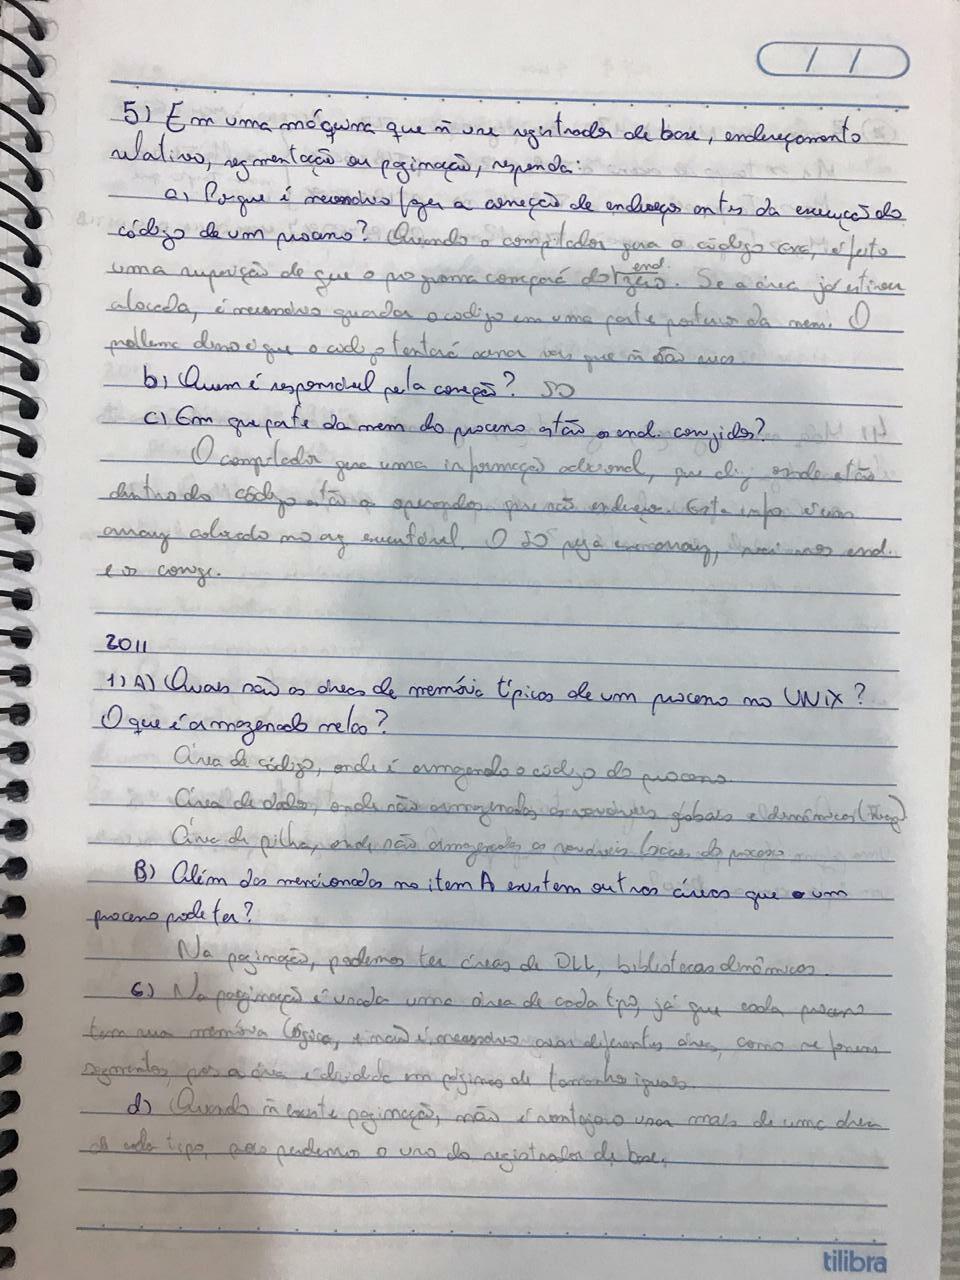 / /
5) Em uma máquina que ñ use registrador de base, endereçamento
relativo, segmentação ou paginação, responda:
a) Porque é necessário fazer a correção de endereços antes da execução do
código de um processo? Quando o compilador gera o código exe, é feito
uma suposição de que o programa começará do end. zero. Se a área já estiver
alocada, é necessário guardar o código em uma parte posterior da mem. O
problema disso é que o código tentará acessar que ñ são suas.
b) Quem é responsável pela correção? SO
c) Em que parte da mem do processo estão os end. corrigidos?
O compilador gera uma informação adicional, que diz onde estão
dentro do código estão os operandos que são endereços. Esta info. vem
array colocado no arq executável. O SO pega esse array, vai nos end.
e os corrige.
2011
1) A) Quais são as áreas de memória típicas de um processo no UNIX?
O que é armazenado nelas?
Área de código, onde é armazenado o código do processo.
Área de dados, onde são armazenadas as variáveis globais e dinâmicas (Heap)
Área de pilha, onde são armazenadas as variáveis locais do processo
B) Além das mencionadas no item A existem outras áreas que um
processo pode ter?
Na paginação, podemos ter áreas de DLL, bibliotecas dinâmicas.
C) Na paginação é usada uma área de cada tipo, já que cada processo
tem sua memória lógica, e não é necessário criar diferentes áreas, como se fossem
segmentos, pois a área é dividida em páginas de tamanho iguais.
d) Quando ñ existe paginação, não é vantajoso usar mais de uma área
de cada tipo, pois perdemos o uso do registrador de base.
tilibra